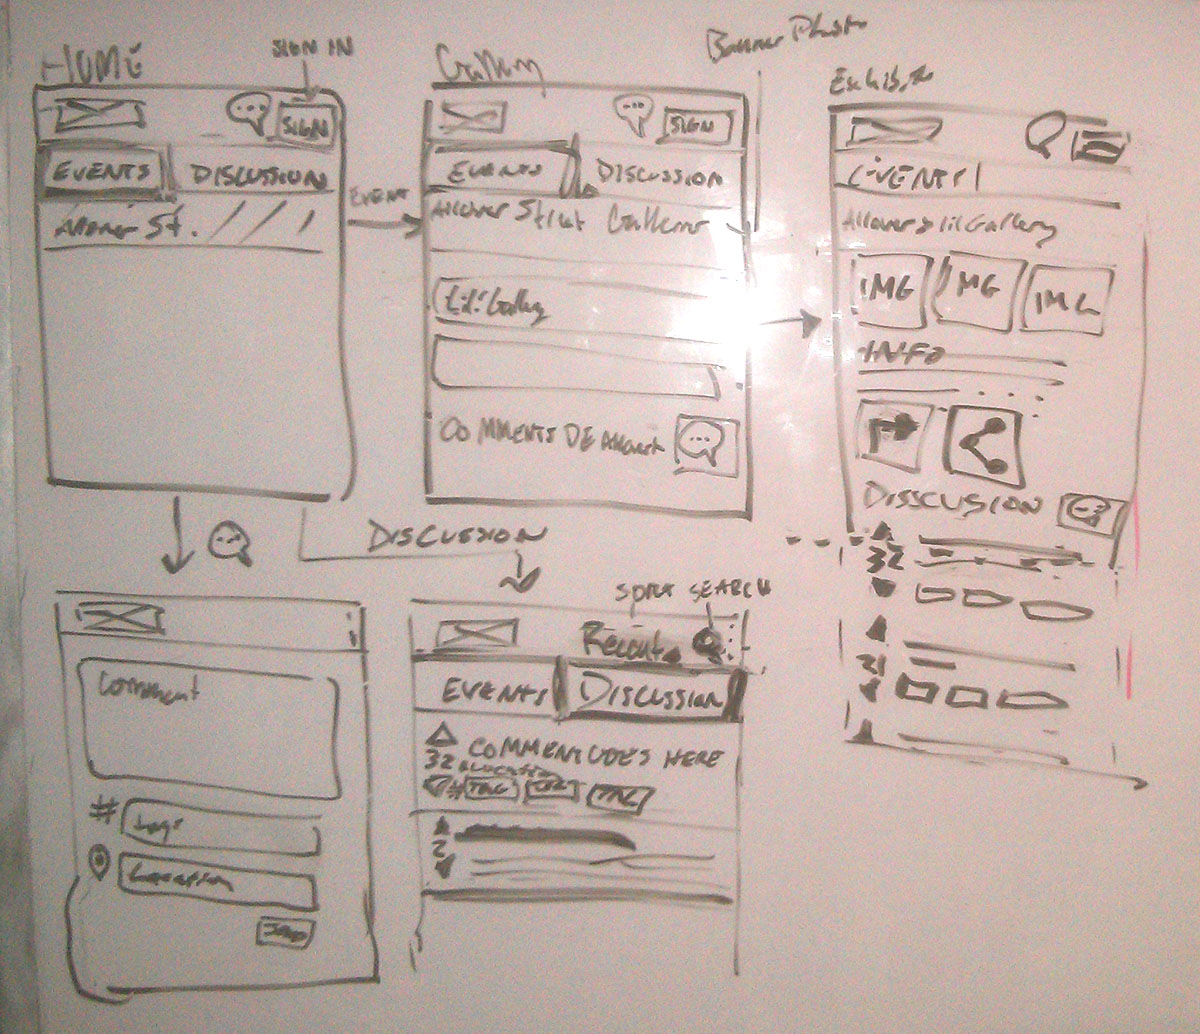 HOME
SIGN IN
SIGN
EVENTS DISCUSSION
St.
EVENT
Gallery
SIGN
EVENTS DISCUSSION
Allover Street Gallerys
Lil' Gallery
COMMENTS DE
Banner Photo
Exhibit
EVENTS
Allover & lil Gallery
IMG IMG IMG
INFO
DISSCUSION
32
21
DISCUSSION
Comment
#
Tags
Location
SEND
SORT SEARCH
Recent
EVENTS DISCUSSION
32 COMMENT GOES HERE
LOCATION
# TAG TAG TAG
2